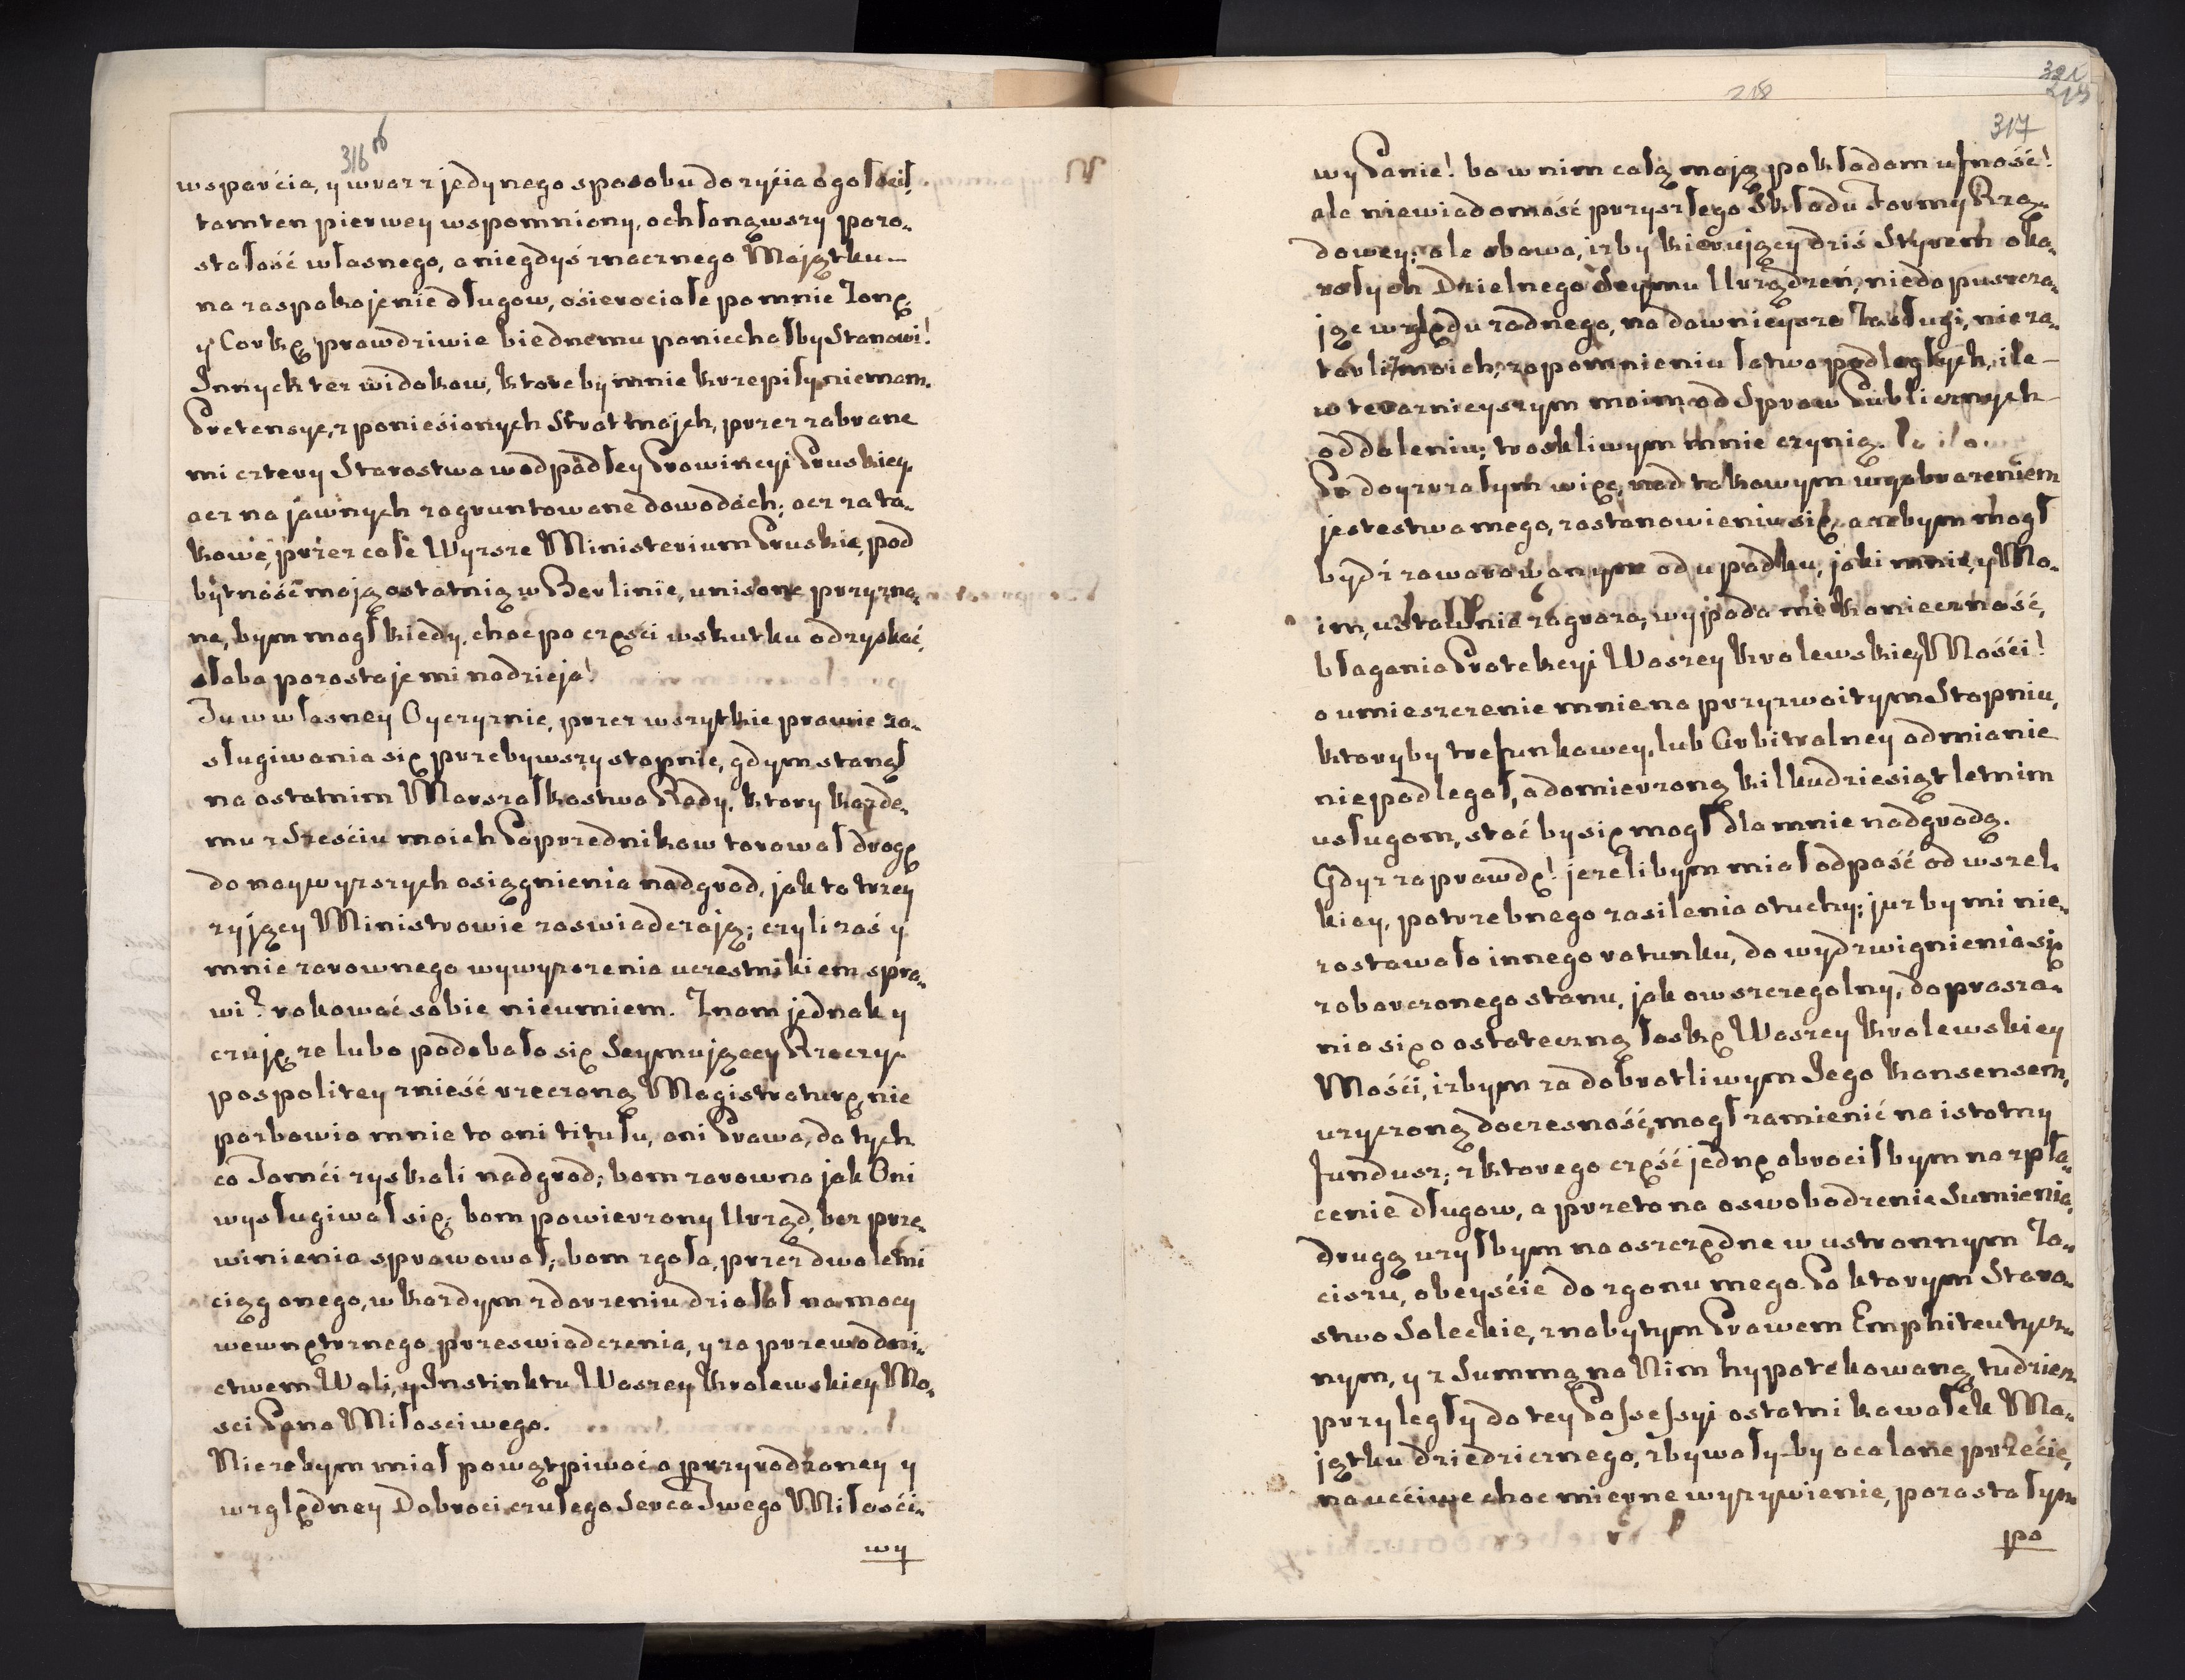 316
wsparćia, y wraz z jedynego sposobu do zyćia ogołocił,
tamten pierwey wspomniony, ochłonąwszy pozo-
stałość własnego, a niegdyś znacznego Majątku
na zaspokojenie długow, ośierociałe po mnie Zonę
y Corkę prawdziwie biednemu poniechałby Stanowi!
Innych tez widokow, ktoreby mnie krzepiły, niemam.
Pretensye, z poniesionych Strat mojch, przez zabrane
mi cztery Starostwa w odpadłey Prowincyi Pruskiey,
acz na jáwnych zagruntowane dowodách; acz za ta-
kowe, przez cale Wyzsze Ministerium Pruskie, pod
bytność moją ostatnią w Berlinie, unisone przyzna-
ne, bym mogł kiedy, choc po częsci w skutku odzyskać,
słaba pozostaje mi nadzieja!
Tu w własney Oyczyznie, przez wszytkie prawie za-
sługiwania się przebywszy stopnie, gdym stanął
na ostatnim Marszałkostwa Rady, ktory kazde-
mu z Sześciu moich Poprzednikow torował drogę
do naywyzszych osiągnienia nadgrod, jak to trzey
zyjący Ministrowie zaswiadczają; czyli zaś y
mnie zarownego wywyzszenia uczestnikiem spra-
wi? rokować sobie nieumiem. Znam jednak y
czuję, ze lubo podobało się Seymującey Rzeczy-
pospolitey znieść rzeczoną Magistraturę, nie
pozbawia mnie to ani titułu, ani Prawa, do tych
co Tamći zyskali nadgrod; bom zarowno jak Oni
wysługiwał się; bom powierzony Urząd, bez prze-
winienia sprawował; bom zgoła, przez dwoletni
ciąg onego, w kazdym zdarzeniu działał na mocy
wewnętrznego przeswiadczenia, y za przewodni-
ctwem Woli, y Instinktu Waszey Krolewskiey Mo-
sci Pana Miłosciwego.
Niezebym miał powątpiwać o przyrodzoney y
względney Dobroci czułego Serca Twego Miłośći-
wy
218
317
wy Panie! bo w nim całą moją pokładam ufność!
ale niewiadomość przyszłego Składu Formy Rzą-
dowey; ale obawa, izby kierujący dziś Styrem oka-
załych Dzielnego Seymu Urządzeń, niedopuszcza-
jąc względu zadnego, na dawnieysze Zasługi, nieza-
tarli moich; zapomnieniu łatwo podległych, ile
w teraznieyszym moim od Spraw Publicznych
oddaleniu; troskliwym mnie czynią.
Po doyrzałym więc, nad takowym wyobrazeniem
jestestwa mego, zastanowieniu się, a zebym mogł
bydź zawarowanym od upadku, jaki mnie, y Mo-
im, ustawnie zagraza; wypada mi konieczność,
błagania Protekcyi Waszey Krolewskiey Mośći!
o umieszczenie mnie na przyzwoitym Stopniu,
ktoryby trefunkowey, lub Arbitralney odmianie
niepodlegał, a domierzoną kilkudziesiąt letnim
usługom, stać by się mogł dla mnie nadgrodą.
Gdyz zaprawdę! jezelibym miał odpaść od wszel-
kiey, potrzebnego zasilenia otuchy; juz by mi nie-
zostawało innego ratunku, do wydzwignienia się
z obarczonego stanu, jak ow szczegolny, doprasza-
nia się o ostateczną łaskę Waszey Krolewskiey
Mośći, izbym za dobrotliwym Jego Konsensem,
uzyczoną doczesność, mogł zamienić na istotny
Fundusz; z ktorego część jednę obrocił bym na zpła-
cenie długow, a przeto na oswobodzenie Sumienia,
drugą uzył bym na oszczędne w ustronnym Za-
ciszu, obeyśćie do zgonu mego. Po ktorym Staro-
stwo Soleckie, z nabytym Prawem Emphiteutycz-
nym, y z Summą na Nim hypotekowaną, tudziez
przyległy do tey Possessyi ostatni kawałek Ma-
jątku dziedzicznego, zbywały-by ocalone przećie,
na uććiwe choc mierne wyzywienie, pozostałym
po